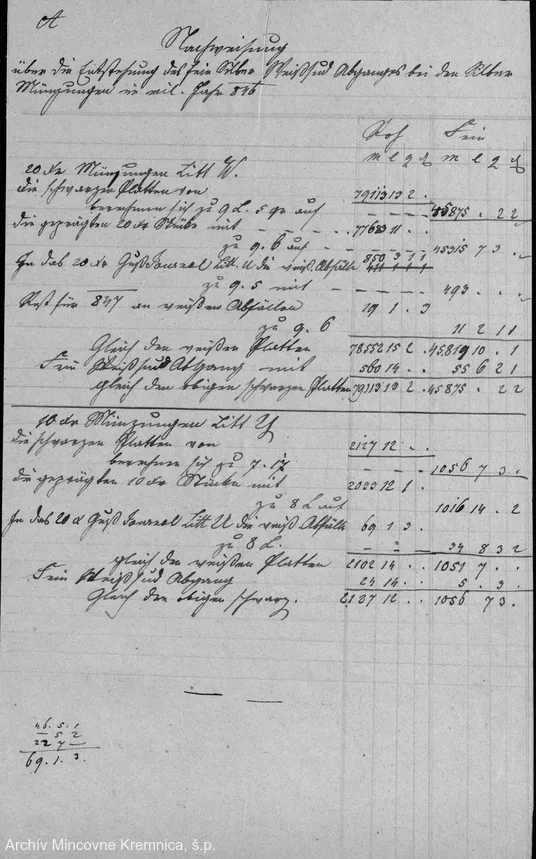 A
Nachweisung
über die Entstehung des fein Silber Weißsud Abganges bei den Silber
Münzungen in mil. Jahr 846
Roh Fein
m l q d m l q d
20 Xr Münzungen Litt W.
die schwarzen Platten von 79113 13 2 .
berechnen sich zu 9 L. 5 gr auf – – – – 45875 . 2 2
die geprägten 20 Xr Stücke mit – – 77683 11 . .
zu 9. 6 auf – – – – – 45315 7 3 .
In das 20 Xr Guß Journal Litt U die weiß. Abfälle 850 3 1 1
zu 9. 5 mit – – – – – 493 . . .
Rest für 847 an weißen Abfällen 19 1 . 3
zu 9. 6 11 2 1 1
Gleich den weißen Platten 78552 15 2 . 45819 10 . 1
Fein Weißsud Abgang mit 560 14 . . 55 6 2 1
gleich den obigen schwarzen Platten 79113 13 2 . 45875 . 2 2
10 Xr Münzungen Litt Y
die schwarzen Platten von 2127 12 . .
berechnen sich zu 7. 17 – – – – 1056 7 3 .
die geprägten 10 Xr Stücke mit 2033 12 1 .
zu 8 L auf 1016 14 . 2
In das 20 X Guß Journal Litt U die weiß Abfälle 69 1 . 3 .
zu 8 L. – – – 34 8 3 2
gleich den weißen Platten 2102 14 . . 1051 7 . .
Fein Weißsud Abgang 24 14 . . 5 . 3 .
Gleich den obigen schwarz. 2127 12 . . 1056 7 3 .
46. 5. 1
– 5 2
22 7 –
69. 1. 3.
Archív Mincovne Kremnica, š.p.